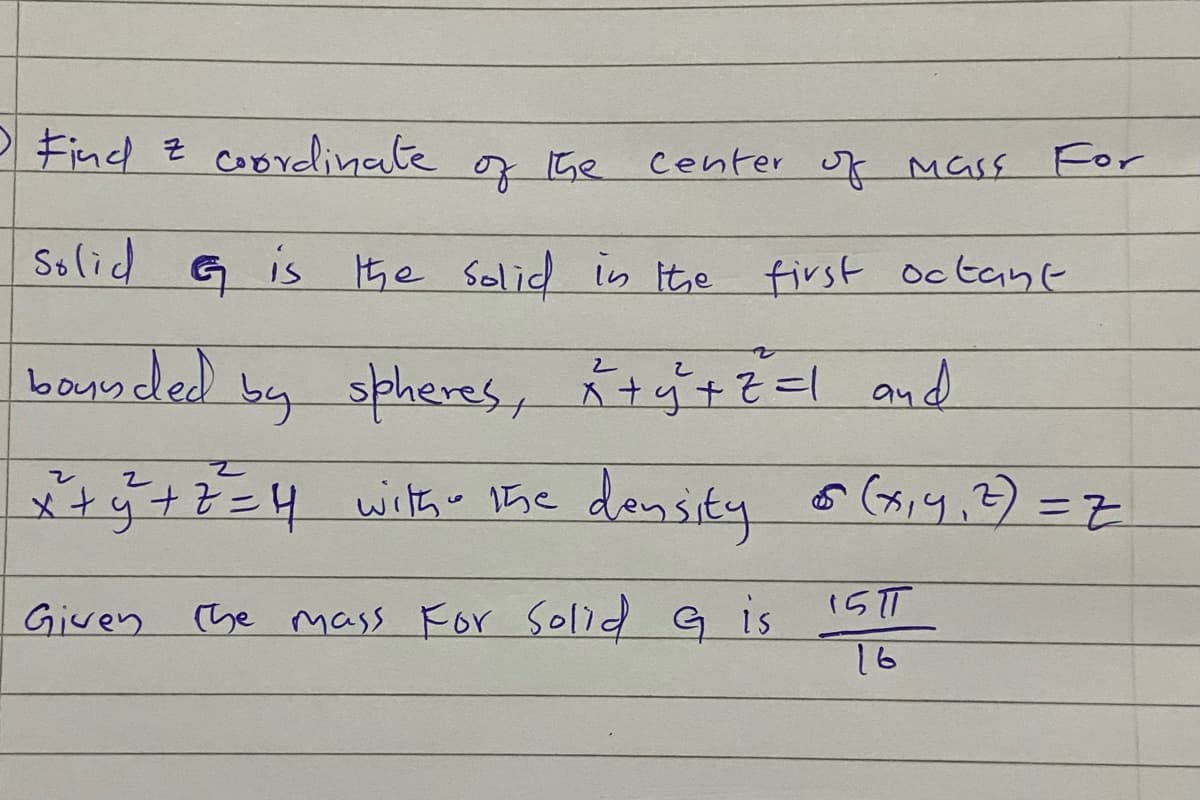 Find z coordinate of the center of mass For
solid G is the solid in the first octant
bounded by spheres, x²+y²+z²=1 and
x²+y²+z²=4 with the density δ(x,y,z)=z
Given the mass For Solid G is 15π/16